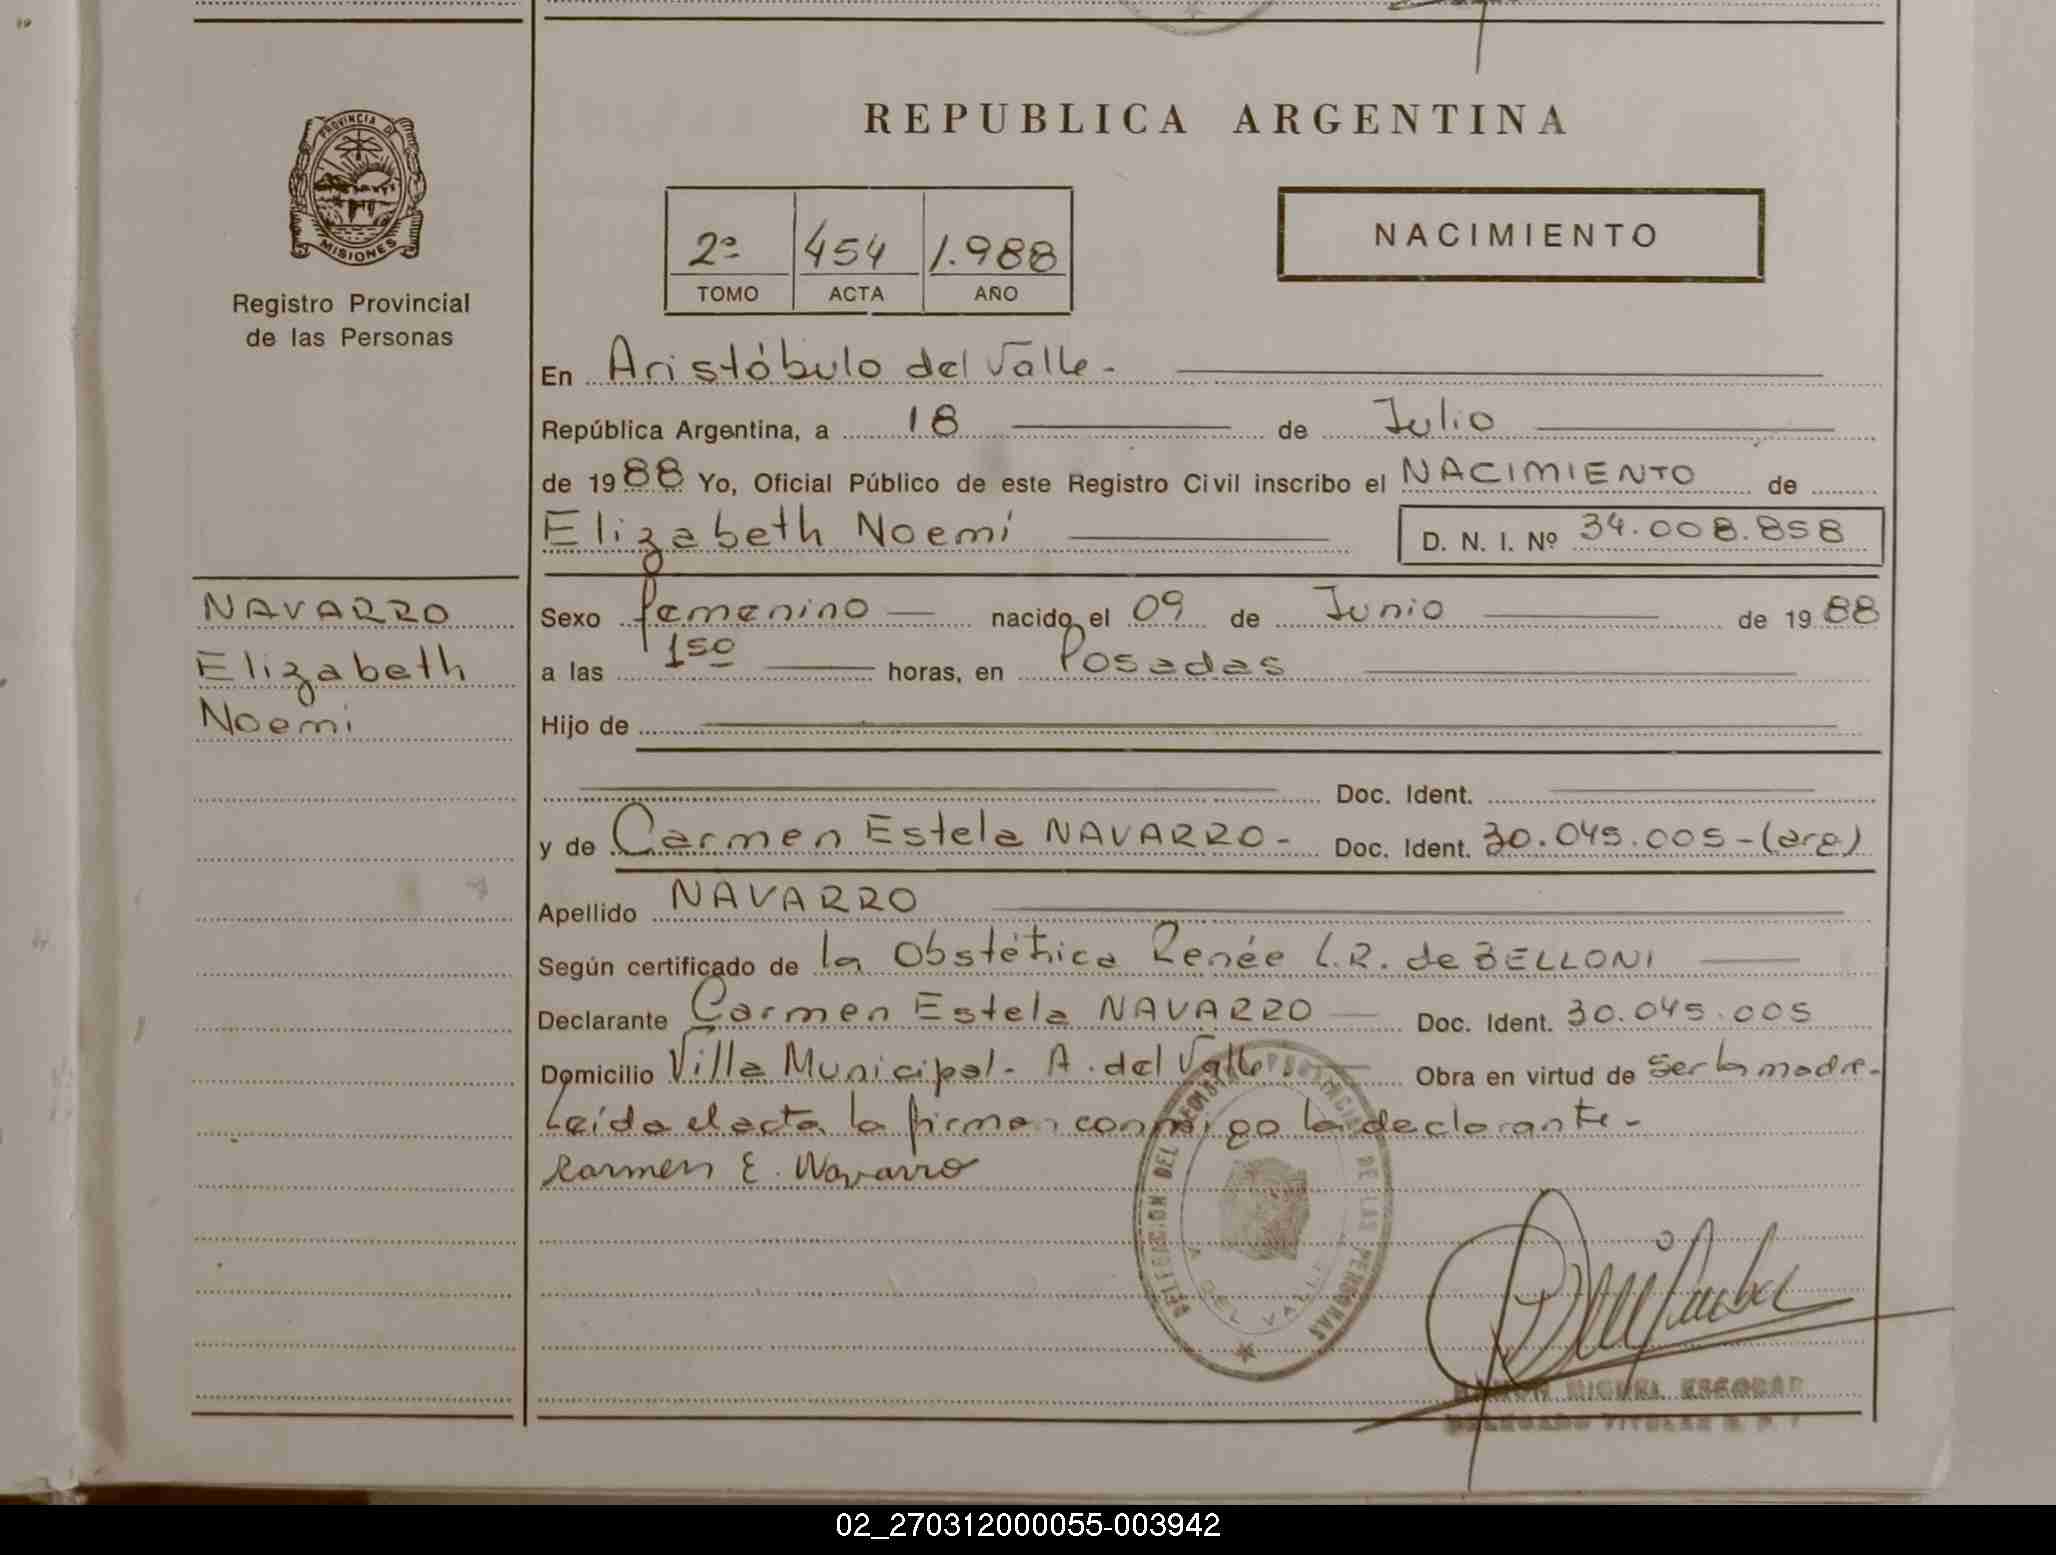 REPUBLICA ARGENTINA
PROVINCIA DE
MISIONES
Registro Provincial
de las Personas
2º 454 1.988
TOMO ACTA AÑO
NACIMIENTO
En Aristóbulo del Valle.-
República Argentina, a 18 de Julio
de 1988 Yo, Oficial Público de este Registro Civil inscribo el NACIMIENTO de
Elizabeth Noemí D. N. I. Nº 34.008.858
NAVARRO
Elizabeth
Noemi
Sexo femenino nacido el 09 de Junio de 1988
a las 150 horas, en Posadas
Hijo de
Doc. Ident.
y de Carmen Estela NAVARRO- Doc. Ident. 30.045.005-(arg)
Apellido NAVARRO
Según certificado de la Obstétrica Renée L.R. de BELLONI
Declarante Carmen Estela NAVARRO Doc. Ident. 30.045.005
Domicilio Villa Municipal- A. del Valle. Obra en virtud de ser la madre.-
Leída el acta la firma conmigo la declarante-
Carmen E. Navarro
DELEGACION DEL REGISTRO PROVINCIAL DE LAS PERSONAS
A. DEL VALLE
RAMON MIGUEL ESCOBAR
DELEGADO TITULAR
02_270312000055-003942